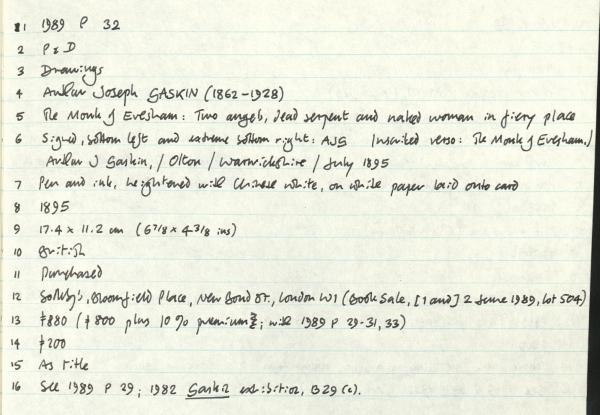 1 1989 P 32
2 P & D
3 Drawings
4 Arthur Joseph GASKIN (1862-1928)
5 The Monk of Evesham: Two angels, dead serpent and naked woman in fiery place
6 Signed, bottom left and extreme bottom right: AJG Inscribed verso: The Monk of Evesham./
Arthur J Gaskin,/ Olton / Warwickshire / July 1895
7 Pen and ink, heightened with Chinese white, on white paper laid onto card
8 1895
9 17.4 x 11.2 cm (6 7/8 x 4 3/8 ins)
10 British
11 Purchased
12 Sotheby's, Bloomfield Place, New Bond St., London W1 (Book Sale, [1 and] 2 June 1989, lot 504)
13 £880 (£800 plus 10% premium; with 1989 P 29-31, 33)
14 £200
15 As title
16 See 1989 P 29; 1982 Gaskin exhibition, B29 (c).